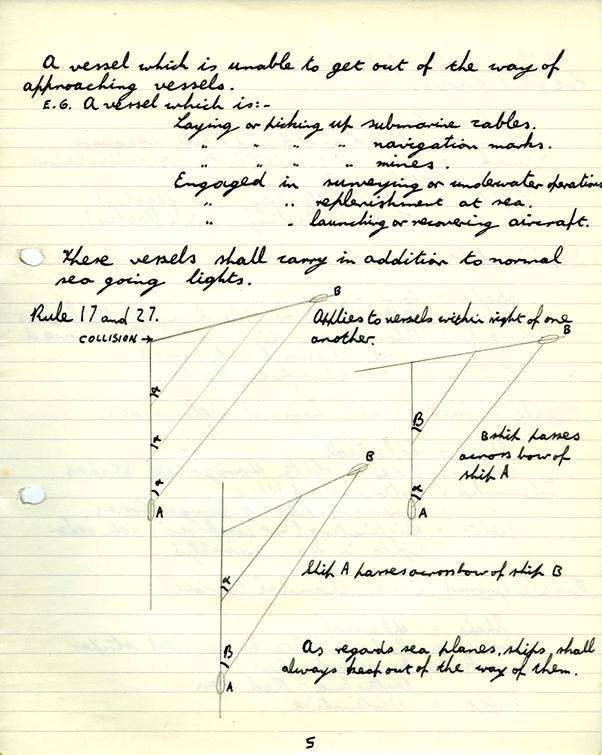 A vessel which is unable to get out of the way of
approaching vessels.
E.G. A vessel which is:-
Laying or picking up submarine cables.
" " " " navigation marks.
" " " " mines.
Engaged in surveying or underwater operations
" " replenishment at sea.
" " launching or recovering aircraft.
These vessels shall carry in addition to normal
sea going lights.
B
Rule 17 and 27.
COLLISION →
Applies to vessels within sight of one
another.
B
α
α
α
A
B
α
A
B ship passes
across bow of
ship A
B
α
B
A
Ship A passes across bow of ship B
As regards sea planes, ships, shall
always keep out of the way of them.
5